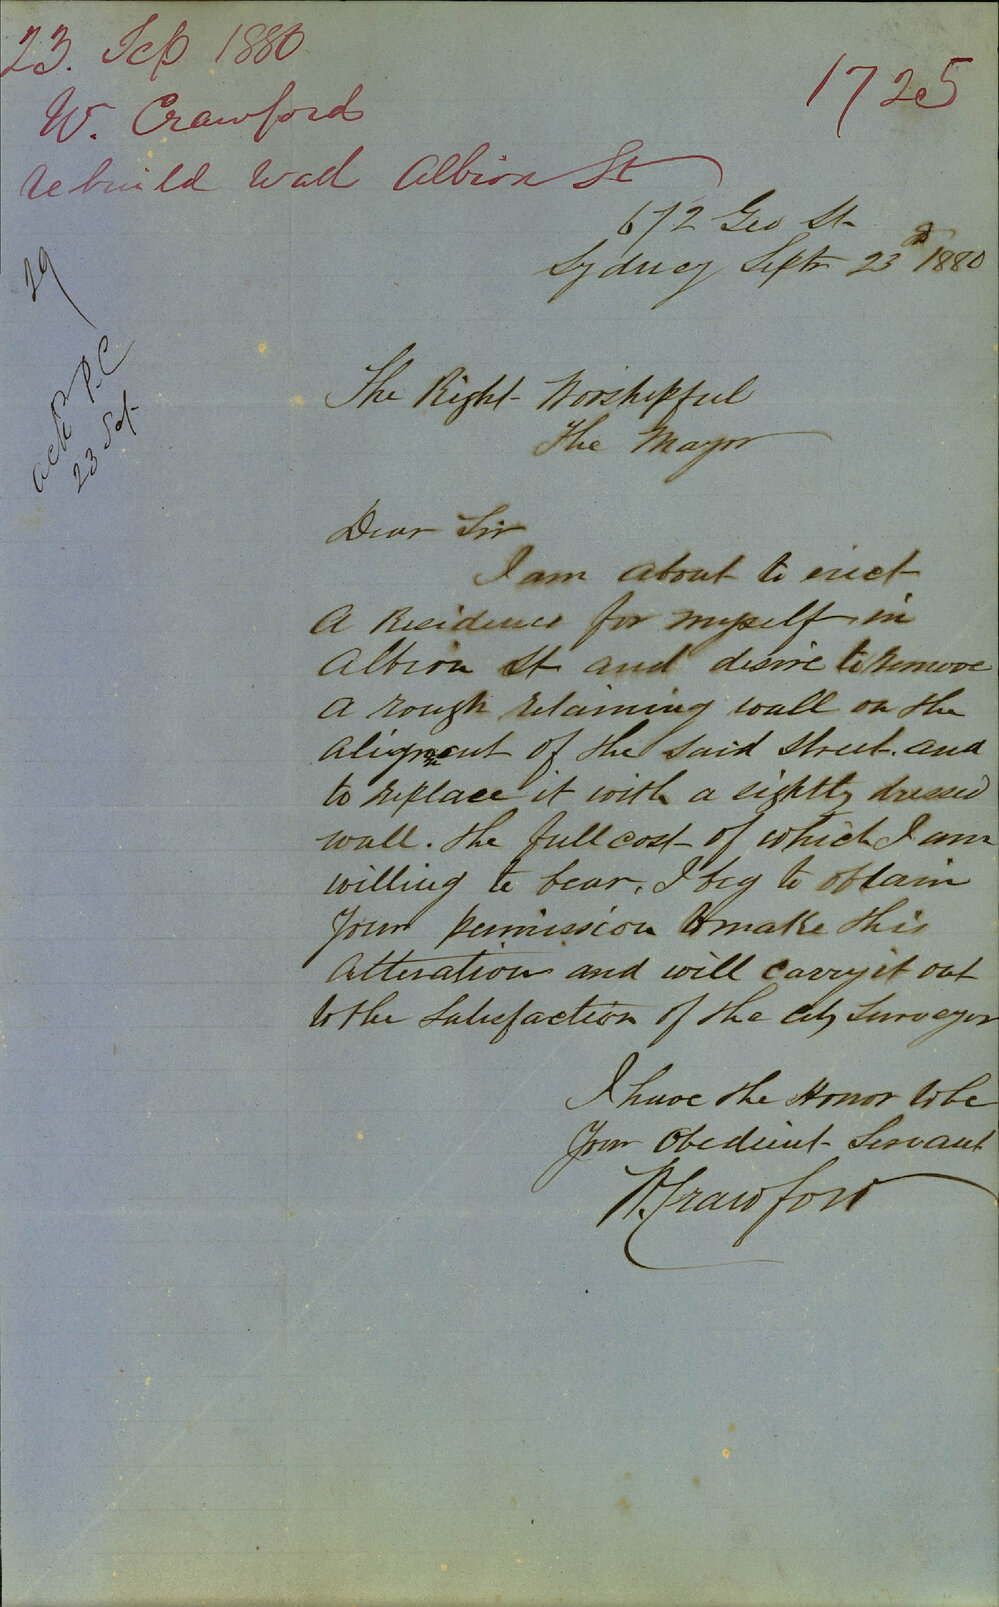 23. Sep 1880
W. Crawford
Rebuild Wall Albion St
1725
29
ackd P.C
23 Sept
672 Geo St
Sydney Septr 23d 1880
The Right Worshipful
The Mayor
Dear Sir
I am about to erect
A Residence for myself in
Albion St and desire to remove
A rough retaining wall on the
alignment of the said street. and
to replace it with a sightly dressed
wall. the full cost of which I am
willing to bear. I beg to obtain
your permission to make this
Alteration and will carry it out
to the satisfaction of the City Surveyor
I have the Honor to be
Your Obedient Servant
W. Crawford